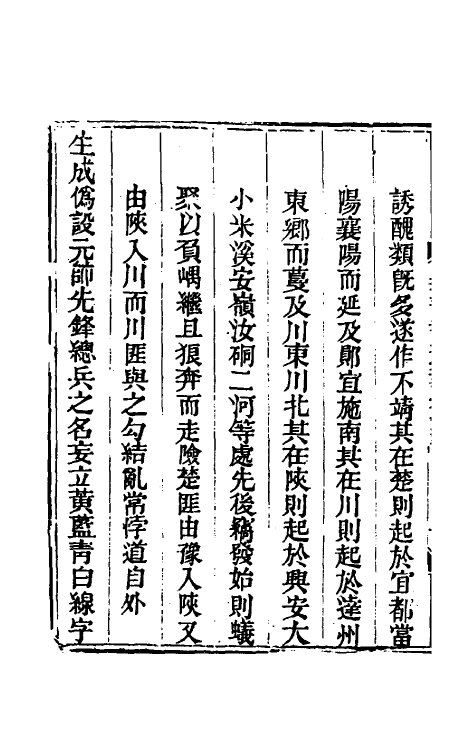 誘醜類旣多遂作不靖其在楚則起於宜都當
陽襄陽而延及鄖宜施南其在川則起於達州
東鄉而蔓及川東川北其在陜則起於興安大
小米溪安嶺汝硐二河等處先後竊發始則蟻
聚以負嵎繼且狼奔而走險楚匪由豫入陜又
由陜入川而川匪與之勾結亂常悖道自外
生成僞設元帥先鋒總兵之名妄立黃藍青白線字